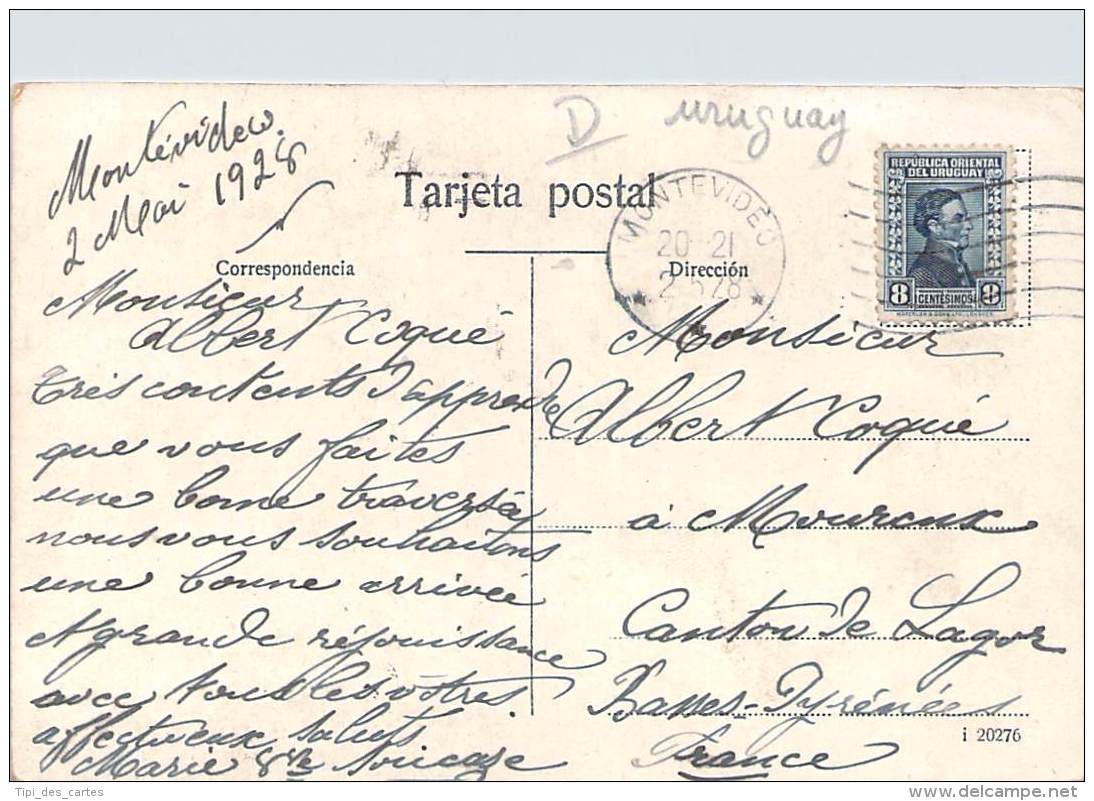 D uruguay
Montévideo.
2 Mai 1928
Tarjeta postal
MONTEVIDEO
20-21
2 5 28
REPÚBLICA ORIENTAL
DEL URUGUAY
8 CENTÉSIMOS 8
Correspondencia
Monsieur
Albert Coqué
très contents d'apprendre
que vous faites
une bonne traversée
nous vous souhaitons
une bonne arrivée
et grande réjouissance
avec tous les vôtres
affectueux saluts
Marie
Dirección
Monsieur
Albert Coqué
à Moureux
Canton de Lagor
Basses-Pyrénées
France
i 20276
Tipi_des_cartes
delcampe.net